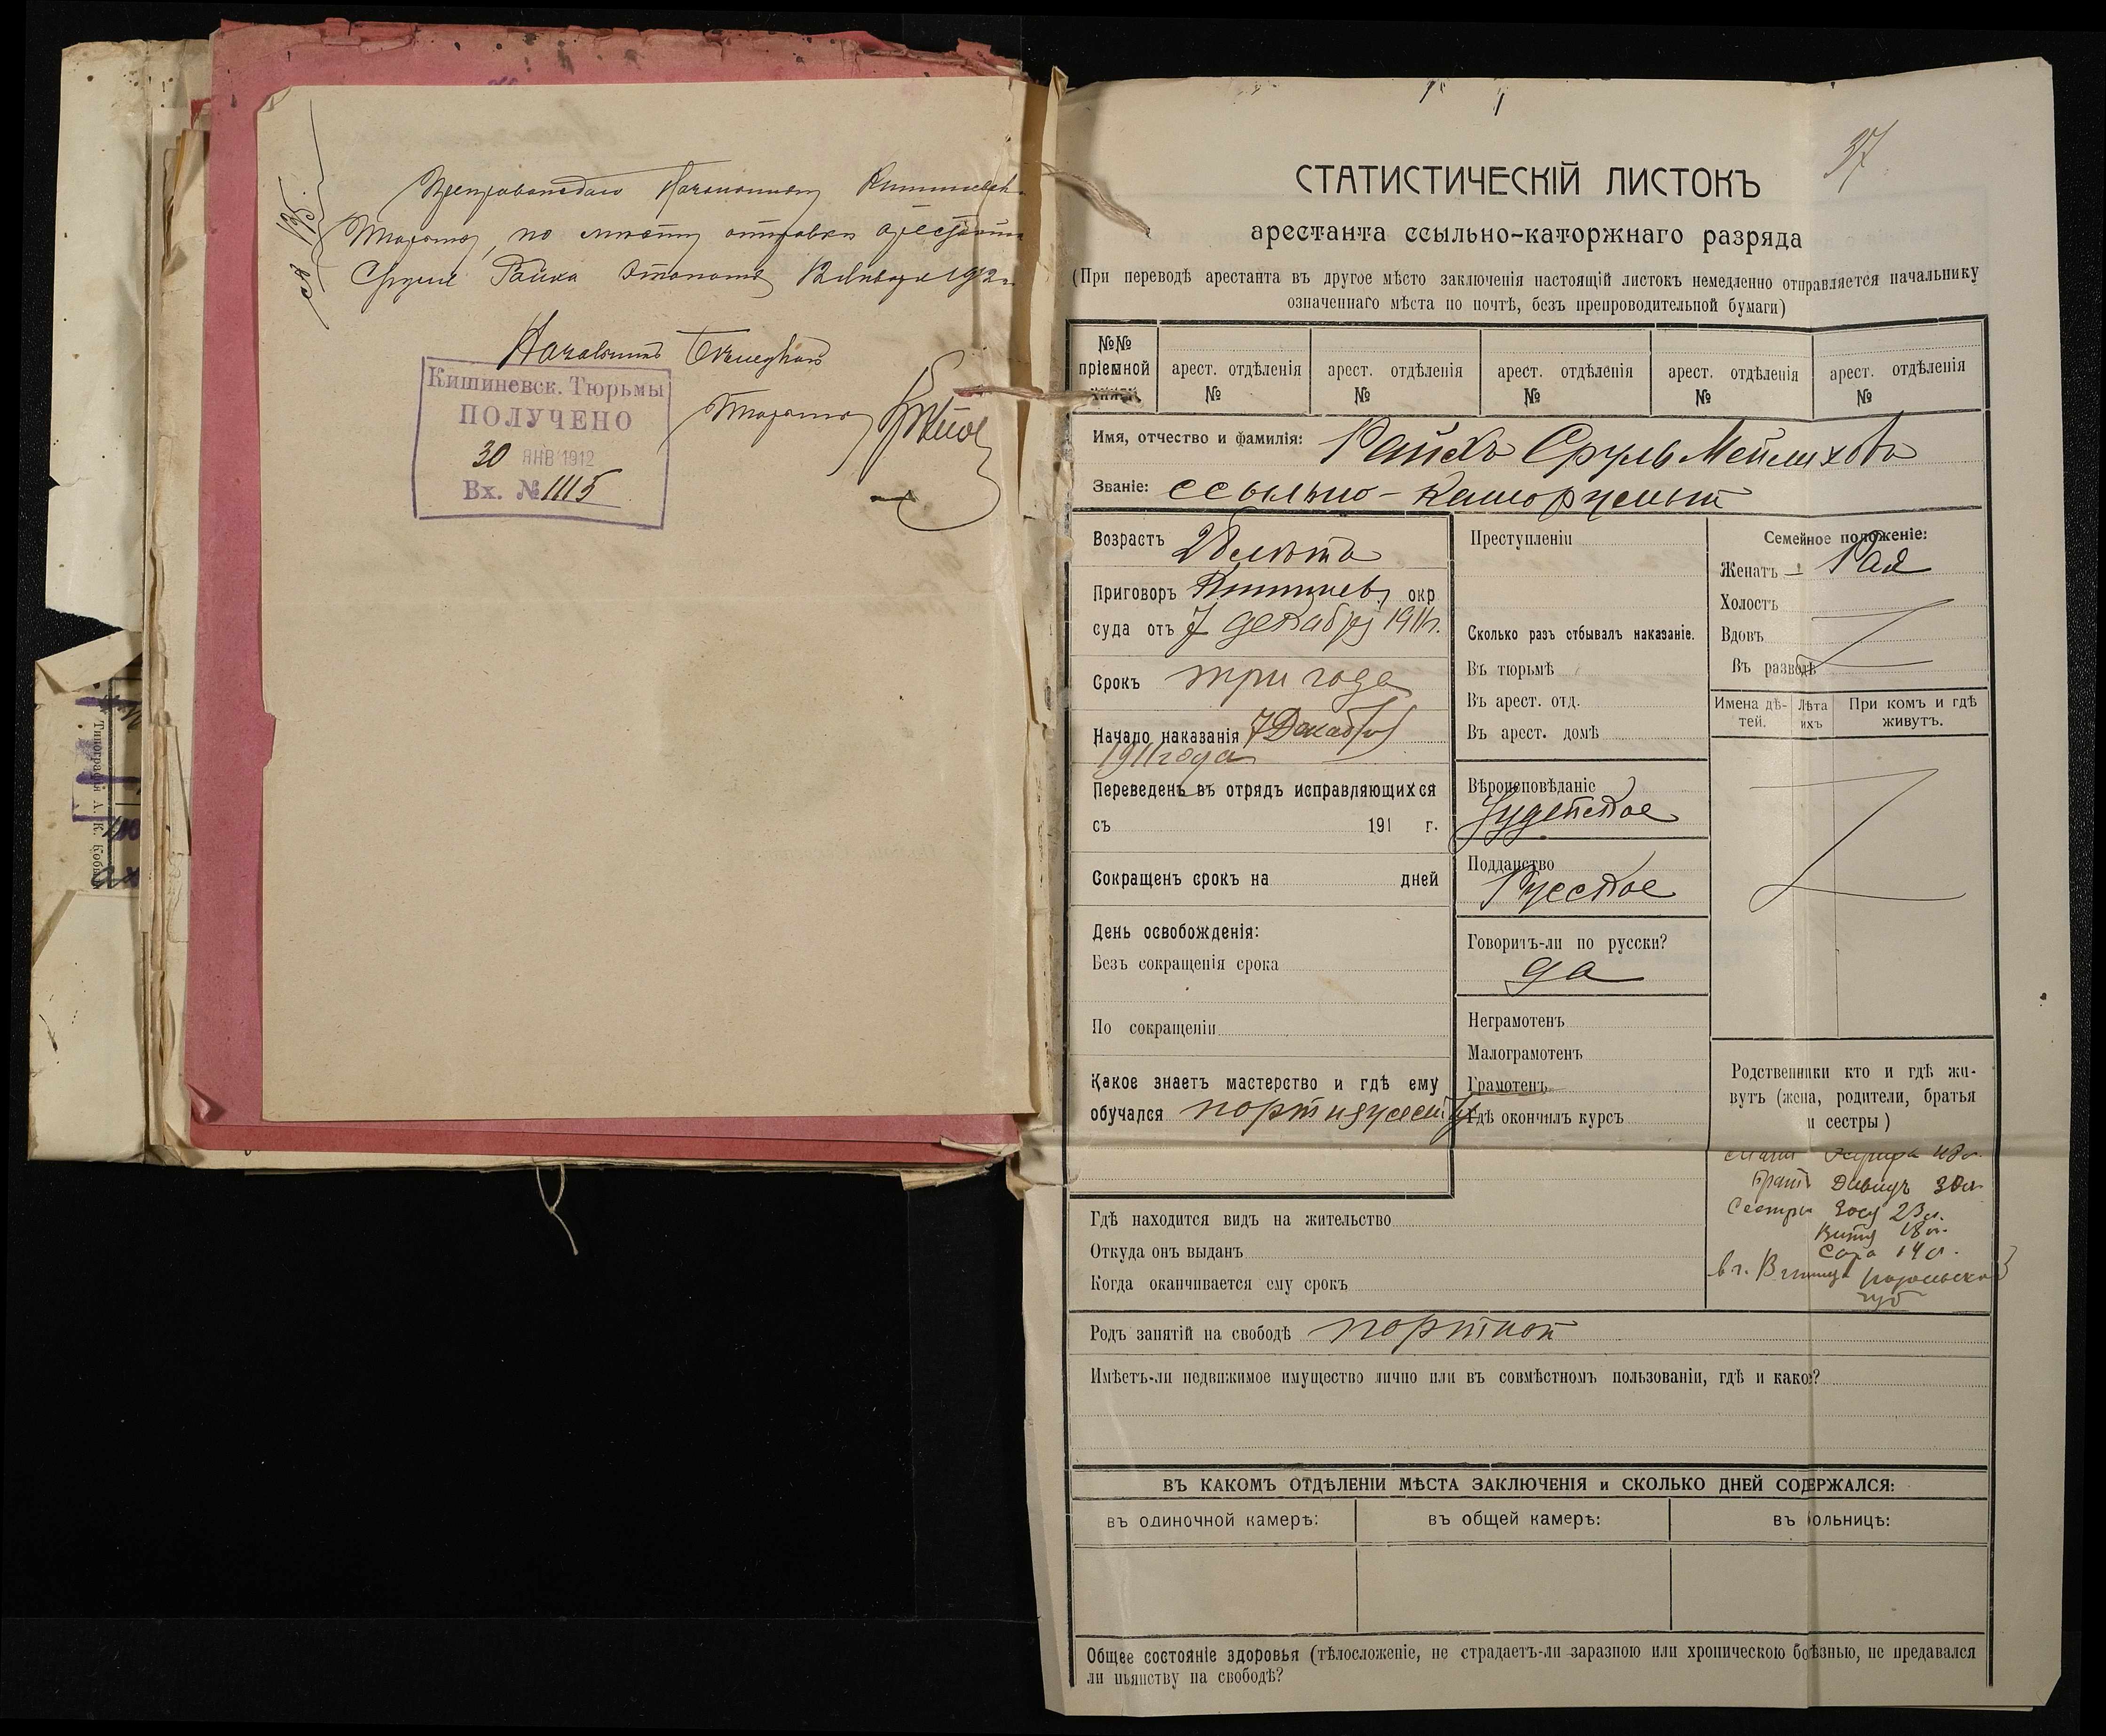 Препровождаю Начальнику Кишиневск.
Тюрьмы, по месту отправки арестанта
Сруля Райха этапомъ Января 1912 г.
Начальникъ
Тюрьмы
Кишиневск. Тюрьмы
ПОЛУЧЕНО
30 ЯНВ 1912
Вх. № 1115
Типографія А. К.
37
СТАТИСТИЧЕСКІЙ ЛИСТОКЪ
арестанта ссыльно-каторжнаго разряда
(При переводѣ арестанта въ другое мѣсто заключенія настоящій листокъ немедленно отправляется начальнику
означеннаго мѣста по почтѣ, безъ препроводительной бумаги)
№№
пріемной
книги
арест. отдѣленія
№
арест. отдѣленія
№
арест. отдѣленія
№
арест. отдѣленія
№
арест. отдѣленія
№
Имя, отчество и фамилія: Райхъ Сруль Мейлиховъ
Званіе: ссыльно-каторжный
Возрастъ 28 лѣтъ
Приговоръ Кишинев. окр
суда отъ 7 декабря 1911 г.
Срокъ три года
Начало наказанія 7 Декабря
1911 года
Переведенъ въ отрядъ исправляющихся
съ 191 г.
Сокращенъ срокъ на дней
День освобожденія:
Безъ сокращенія срока
По сокращеніи
Какое знаетъ мастерство и гдѣ ему
обучался портняжеству
Преступленіи
Сколько разъ отбывалъ наказаніе.
Въ тюрьмѣ
Въ арест. отд.
Въ арест. домѣ
Вѣроисповѣданіе
Іудейское
Подданство
Русское
Говоритъ-ли по русски?
да
Неграмотенъ
Малограмотенъ
Грамотенъ
Гдѣ окончилъ курсъ
Семейное положеніе:
Женатъ – Рая
Холостъ
Вдовъ
Въ разводѣ
Имена дѣ-
тей.
Лѣта
ихъ
При комъ и гдѣ
живутъ.
Родственники кто и гдѣ жи-
вутъ (жена, родители, братья
и сестры)
Мать 48 л.
Братъ Давидъ 30 л.
Сестры 23 л.
18 л.
Сара 14 л.
в г. Винница Подольской
губ
Гдѣ находится видъ на жительство
Откуда онъ выданъ
Когда оканчивается ему срокъ
Родъ занятій на свободѣ портной
Имѣетъ-ли недвижимое имущество лично или въ совмѣстномъ пользованіи, гдѣ и какое?
ВЪ КАКОМЪ ОТДѢЛЕНІИ МѢСТА ЗАКЛЮЧЕНІЯ и СКОЛЬКО ДНЕЙ СОДЕРЖАЛСЯ:
въ одиночной камерѣ:
въ общей камерѣ:
въ больницѣ:
Общее состояніе здоровья (тѣлосложеніе, не страдаетъ-ли заразною или хроническою болѣзнью, не предавался
ли пьянству на свободѣ?